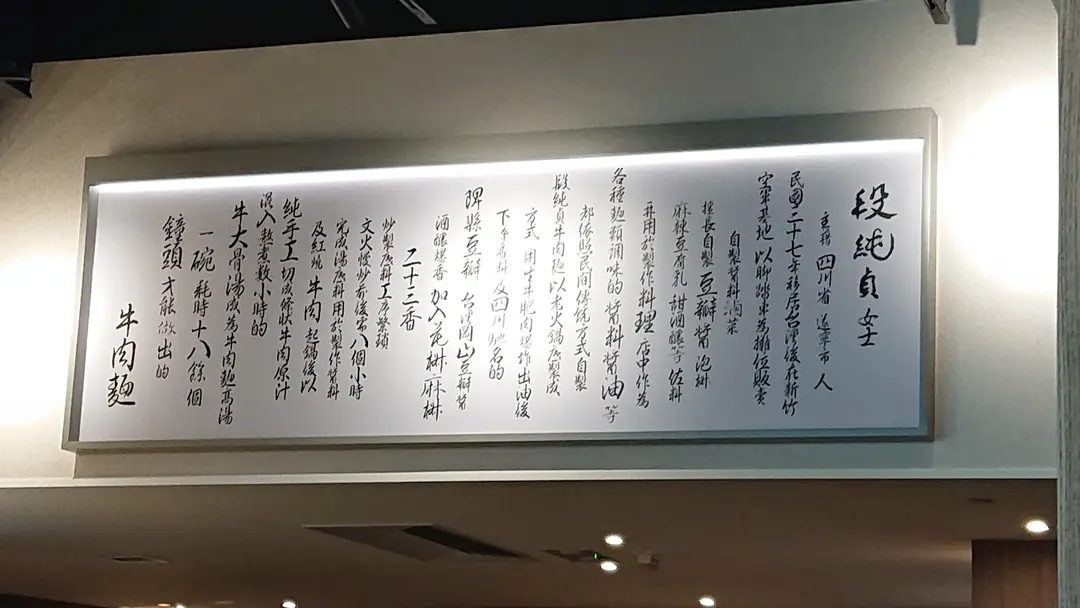 段純貞女士
主籍四川省遂寧市人
民國三十七年移居台灣後在新竹
空軍基地以腳踏車為攤位販賣
自製醬料泡菜
擅長自製豆瓣醬泡椒
麻辣豆腐乳甜酒釀等佐料
再用於製作料理店中作為
各種麵類調味的醬料醬油等
都依照民間傳統方式自製
段純貞牛肉麵以老火鍋底製成
方式用生牛肥肉爆炸出油後
下辛香料及四川馳名的
郫縣豆瓣台灣岡山豆瓣醬
酒釀爆香加入花椒麻椒
二十三香
炒製底料工序繁瑣
文火慢炒前後需八個小時
完成湯底料用於製作醬料
及紅燒牛肉起鍋後以
純手工切成條狀牛肉原汁
混入熬煮數小時的
牛大骨湯成為牛肉麵高湯
一碗耗時十八餘個
鐘頭才能做出的
牛肉麵